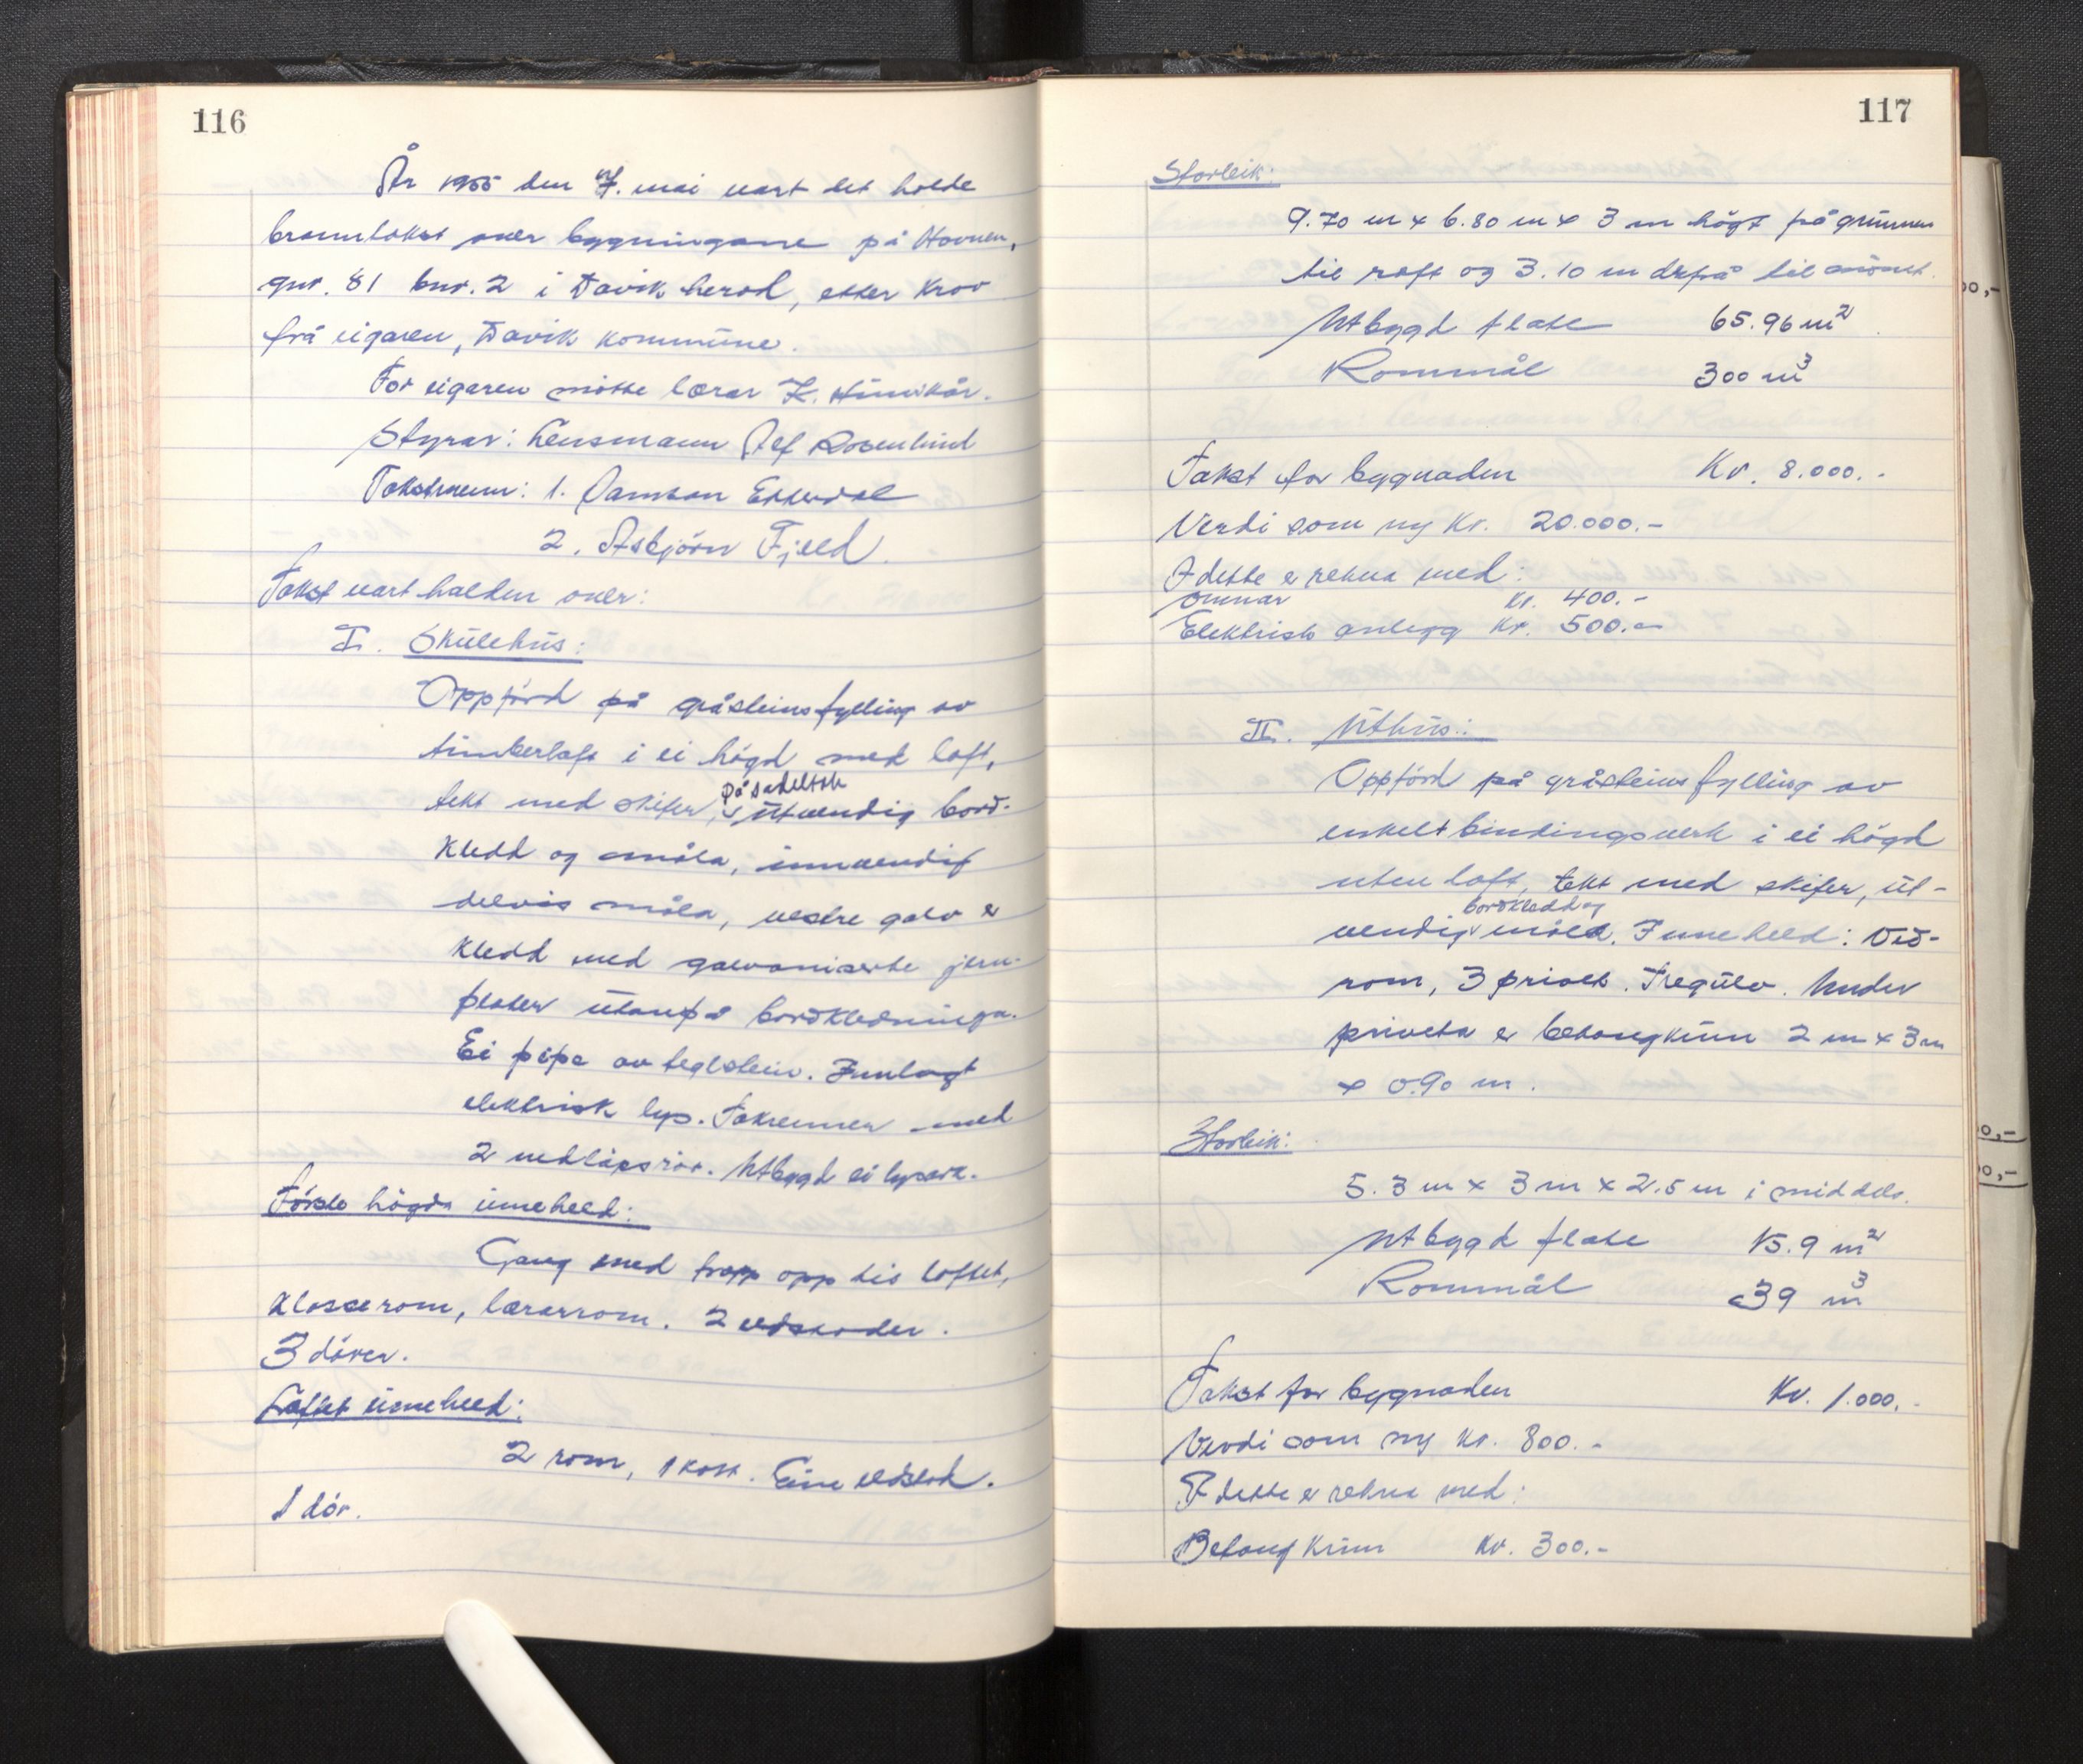 116
År 1955 den 7. mai vart det holde
branntakst over bygningane på Hovnen,
gnr. 81 bnr. 2 i Davik herad, etter krav
frå eigaren, Davik kommune.
For eigaren møtte lærar K.
Styrar: Lensmann Alf Rosenlund
Takstmenn: 1. Samson Ekkerdal
2. Asbjörn Fjeld.
Takst vart halden over:
I. Skülehüs:
Oppförd på gråsteinsfylling av
timberlaft i ei högd med loft,
tekt med skifer, på sadeltak ütvendig bord-
kledd og måla, innvendig
delvis måla, vestre gavl er
kledd med galvaniserte jern-
plater ütanpå bordkledninga.
Ei pipe av teglstein. Innlagt
elektrisk lys. Takrenner med
2 nedlöpsrör. Utbygd ei lysark.
Förste högda inneheld:
Gang med trapp opp til loftet,
klasserom, lærarrom. 2 eldstader.
3 dörer.
Loftet inneheld:
2 rom, 1 kott. Ein eldstad.
1 dör.
117
Storleik:
9.70 m x 6.80 m x 3 m högt frå grunnen
til raft og 3.10 m derfrå til mönet.
Utbygd flate 65.96 m²
Rommål 300 m³
Takst for bygnaden Kr. 8.000.-
Verdi som ny Kr. 20.000.-
I dette er rekna med:
Omnar Kr. 400.-
Elektrisk anlegg Kr. 500.-
II. Üthüs:
Oppförd på gråsteinsfylling av
enkelt bindingsverk i ei högd
uten loft, tekt med skifer, üt-
vendig bordkledd og måla. Inneheld: Ved-
rom, 3 privet. Tregülv. Under
priveta er betongkum 2 m x 3 m
x 0.90 m.
Storleik:
5.3 m x 3 m x 2.5 m i middels.
Utbygd flate 15.9 m²
Rommål 39 m³
Takst for bygnaden Kr. 1.000.-
Verdi som ny Kr. 800.-
I dette er rekna med:
Betong kum Kr. 300.-